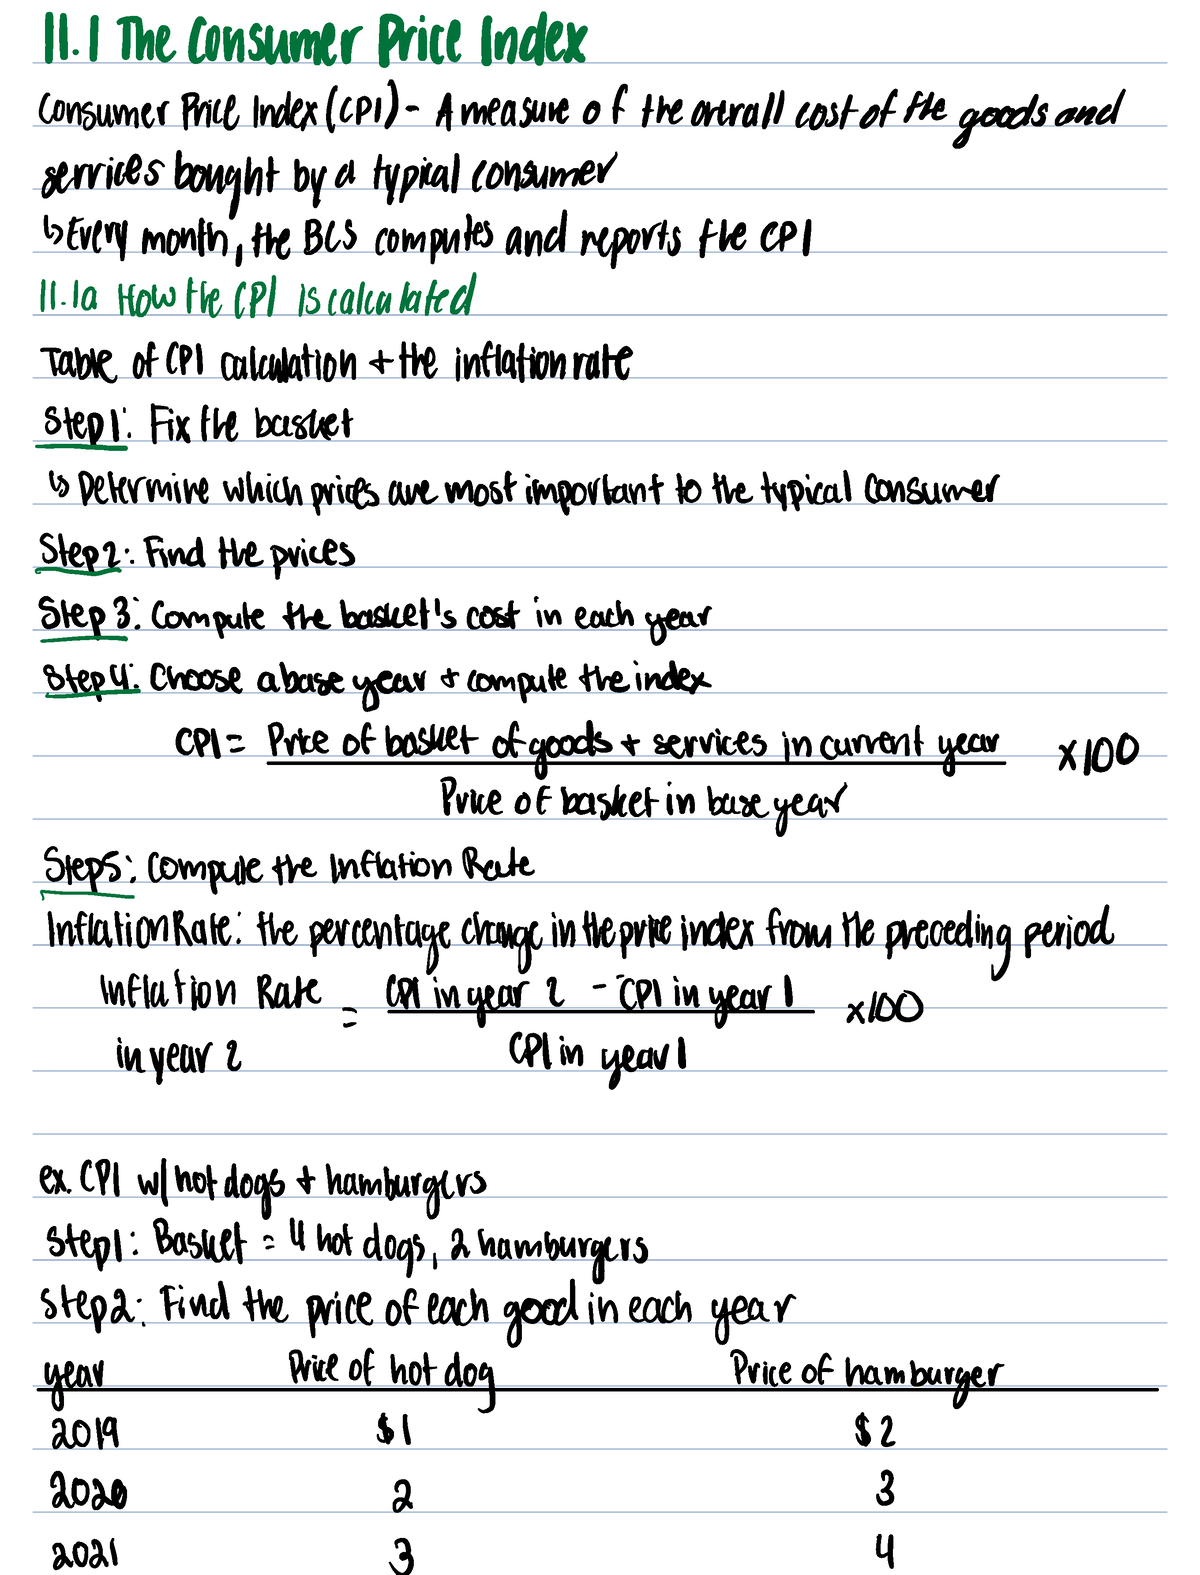 11.1 The Consumer Price Index
Consumer Price Index (CPI) - A measure of the overall cost of the goods and
services bought by a typical consumer
↳ Every month, the BLS computes and reports the CPI
11.1a How the CPI is calculated
Table of CPI calculation + the inflation rate
Step 1: Fix the basket
↳ Determine which prices are most important to the typical consumer
Step 2: Find the prices
Step 3: Compute the basket's cost in each year
Step 4: Choose a base year + compute the index
CPI = Price of basket of goods + services in current year x100
Price of basket in base year
Step 5: Compute the Inflation Rate
Inflation Rate: the percentage change in the price index from the preceding period
Inflation Rate = CPI in year 2 - CPI in year 1 x100
in year 2 CPI in year 1
ex. CPI w/ hot dogs + hamburgers
Step 1: Basket = 4 hot dogs, 2 hamburgers
Step 2: Find the price of each good in each year
year Price of hot dog Price of hamburger
2019 $1 $2
2020 2 3
2021 3 4